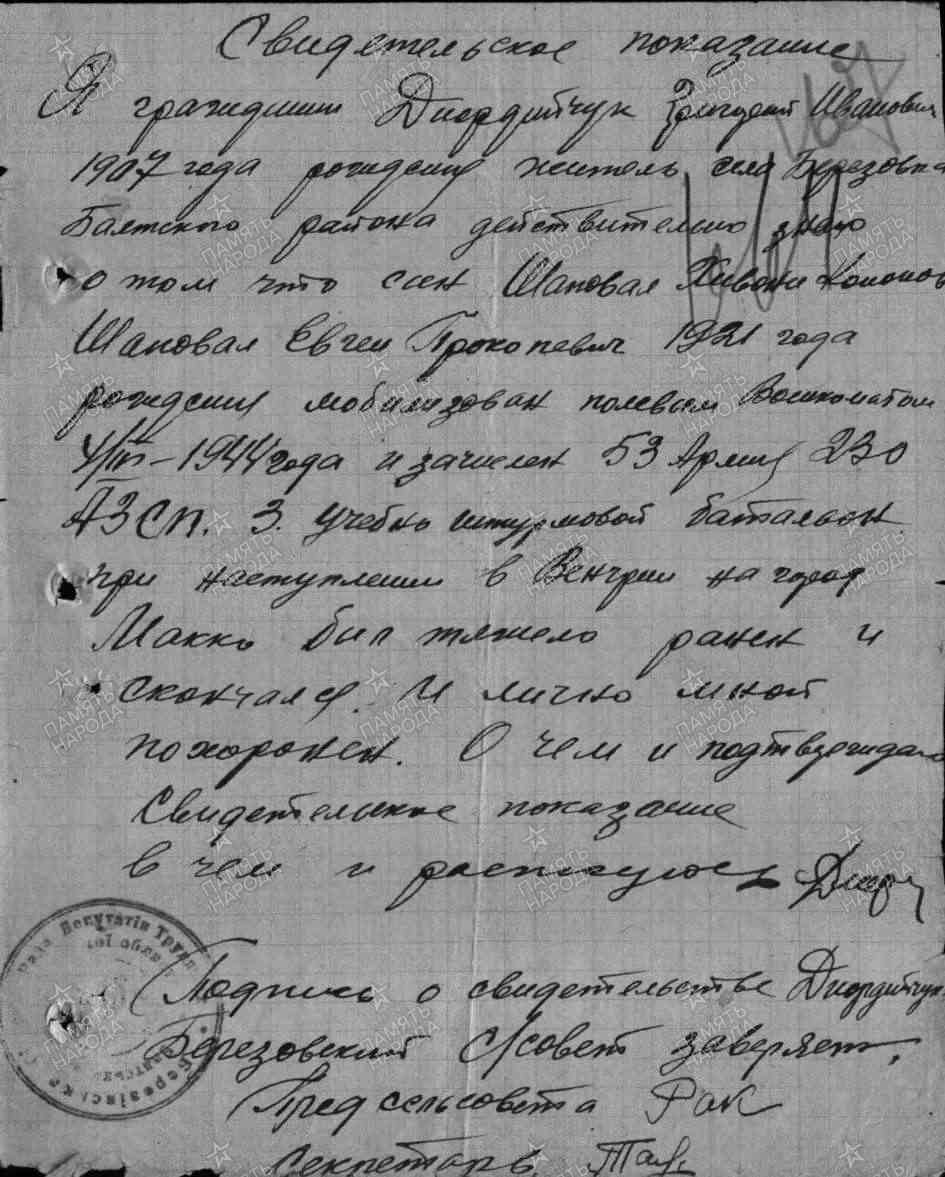 Свидетельское показание
Я гражданин Диордийчук Григорий Иванович
1907 года рождения житель села Березовка
Балтского района действительно знаю
о том что сын Шаповал Хивони
Шаповал Евген Прокопевич 1921 года
рождения мобилизован полевым Военкоматом
4/IV-1944 года и зачислен 53 Армия 230
АЗСП. 3. Учебно штурмовой батальон
при наступлении в Венгрии на город
Макко бил тяжело ранен и
скончался. И лично мной
похоронен. О чем и подтверждаю
Свидетельское показание
в чем и распісуюсь Диор
Подпись о свидетельстве Диордийчук
Березовский с/совет заверяет.
Пред сельсовета Рак
Секретарь
Рада Депутатів Труд
ої обла
Березівськ
ПАМЯТЬ НАРОДА